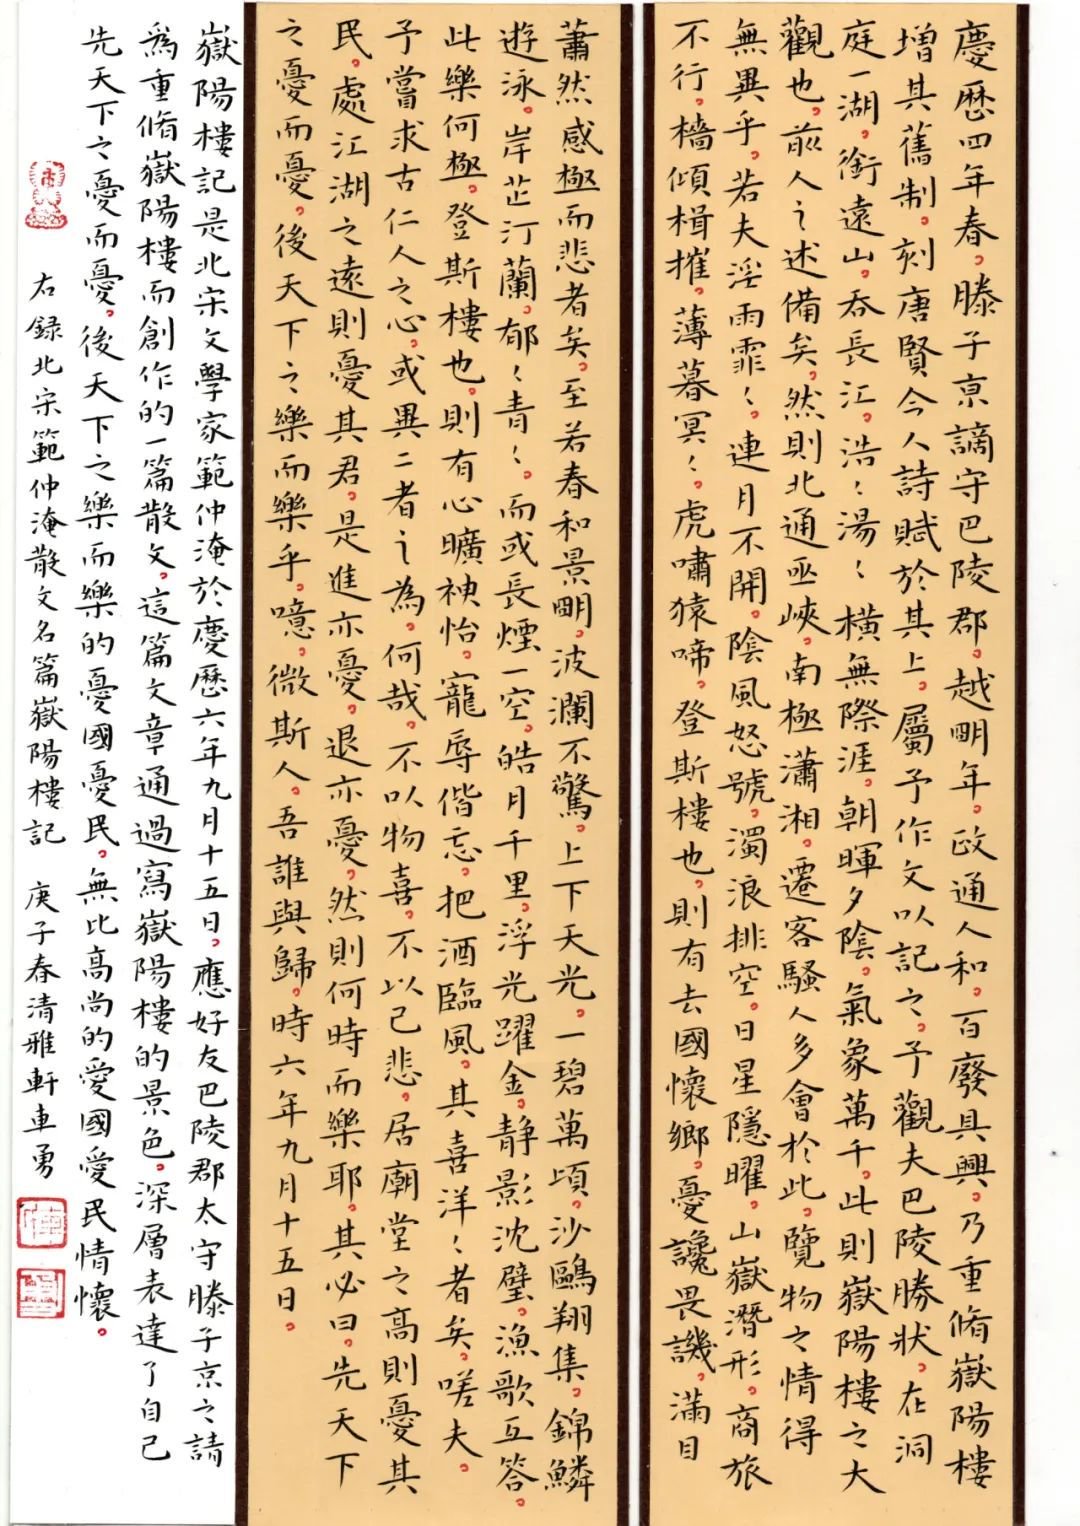 慶歷四年春。滕子京謫守巴陵郡。越朙年。政通人和。百廢具興。乃重脩嶽陽樓
增其舊制。刻唐賢今人詩賦於其上。屬予作文以記之。予觀夫巴陵勝狀。在洞
庭一湖。銜遠山。吞長江。浩〻湯〻橫無際涯。朝暉夕陰。氣象萬千。此則嶽陽樓之大
觀也。前人之述備矣。然則北通巫峽。南極瀟湘。遷客騷人多會於此。覽物之情得
無異乎。若夫淫雨霏〻。連月不開。陰風怒號。濁浪排空。日星隱曜。山嶽潛形。商旅
不行。檣傾楫摧。薄暮冥〻虎嘯猿啼。登斯樓也。則有去國懷鄉。憂讒畏譏。滿目
蕭然感極而悲者矣。至若春和景朙。波瀾不驚。上下天光。一碧萬頃。沙鷗翔集。錦鱗
遊泳。岸芷汀蘭。郁〻青〻。而或長煙一空。皓月千里。浮光躍金。靜影沈璧。漁歌互答。
此樂何極。登斯樓也。則有心曠神怡。寵辱偕忘。把酒臨風。其喜洋〻者矣。嗟夫。
予嘗求古仁人之心。或異二者之為。何哉。不以物喜。不以己悲。居廟堂之高則憂其
民。處江湖之遠則憂其君。是進亦憂。退亦憂。然則何時而樂耶。其必曰。先天下
之憂而憂。後天下之樂而樂乎。噫。微斯人。吾誰與歸。時六年九月十五日。
嶽陽樓記是北宋文學家範仲淹於慶歷六年九月十五日。應好友巴陵郡太守滕子京之請
為重脩嶽陽樓而創作的一篇散文。這篇文章通過寫嶽陽樓的景色。深層表達了自己
先天下之憂而憂。後天下之樂而樂的憂國憂民。無比高尚的愛國愛民情懷。
右錄北宋範仲淹散文名篇嶽陽樓記 庚子春清雅軒車勇